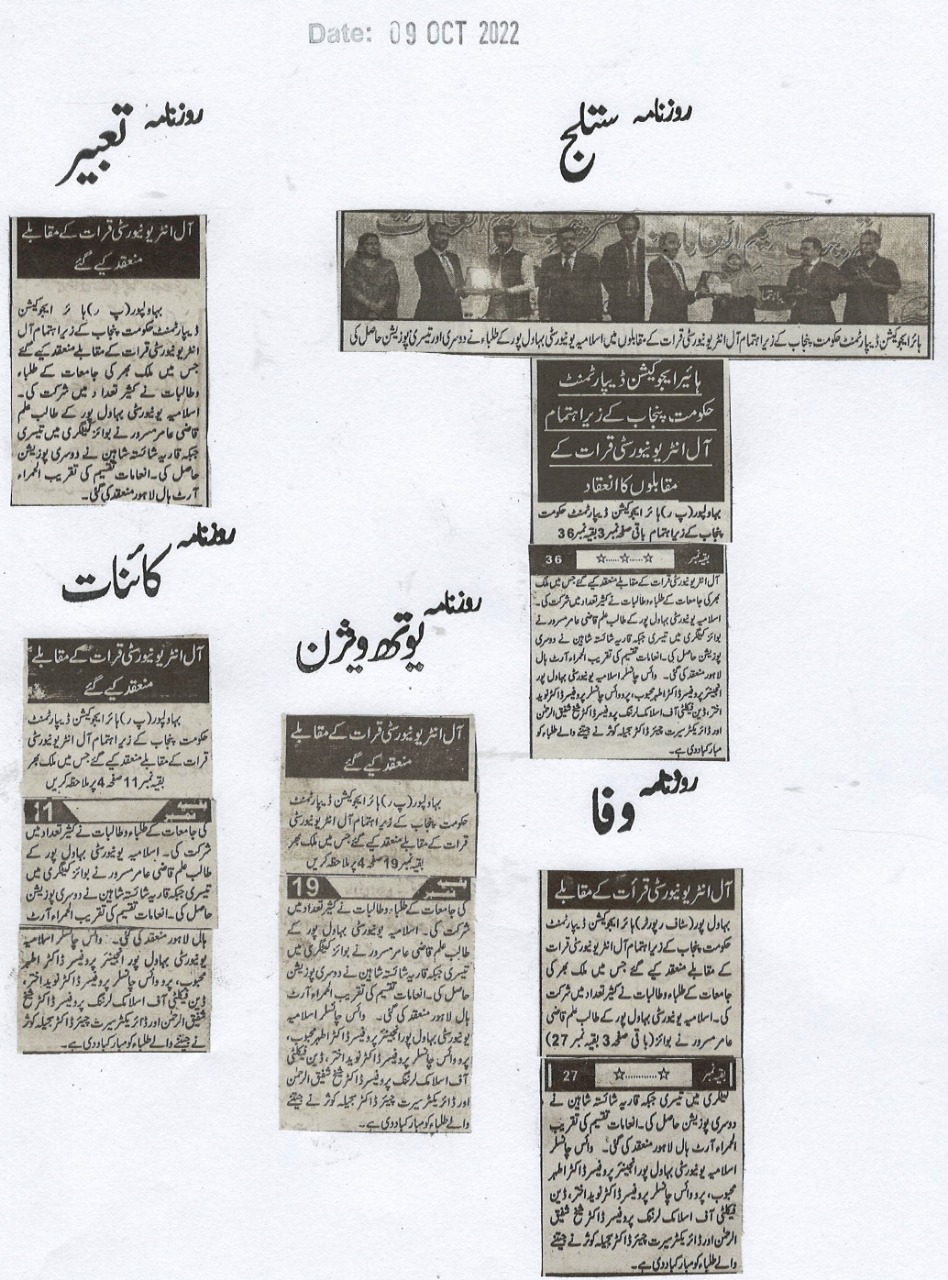 Date: 09 OCT 2022
روزنامہ ستلج
ہائرایجوکیشن ڈیپارٹمنٹ حکومت پنجاب کے زیراہتمام آل انٹریونیورسٹی قرات کے مقابلوں میں اسلامیہ یونیورسٹی بہاول پور کے طلباء نے دوسری اور تیسری پوزیشن حاصل کی
ہائیر ایجوکیشن ڈیپارٹمنٹ
حکومت پنجاب کے زیراہتمام
آل انٹریونیورسٹی قرات کے
مقابلوں کا انعقاد
بہاولپور(پ ر)ہائر ایجوکیشن ڈیپارٹمنٹ حکومت
پنجاب کے زیراہتمام باقی صفحہ نمبر3بقیہ نمبر36
بقیہ نمبر ☆.....☆.....☆ 36
آل انٹریونیورسٹی قرات کے مقابلے منعقد کیے گئے جس میں ملک
بھر کی جامعات کے طلباء وطالبات نے کثیر تعداد میں شرکت کی۔
اسلامیہ یونیورسٹی بہاول پور کے طالب علم قاضی عامر مسرور نے
بوائز کیٹگری میں تیسری جبکہ قاریہ شائستہ شاہین نے دوسری
پوزیشن حاصل کی۔انعامات تقسیم کی تقریب الحمراء آرٹ ہال
لاہور منعقد کی گئی۔ وائس چانسلر اسلامیہ یونیورسٹی بہاول پور
انجینئر پروفیسر ڈاکٹر اطہر محبوب، پرو وائس چانسلر پروفیسر ڈاکٹر نوید
اختر، ڈین فیکلٹی آف اسلامک لرننگ پروفیسر ڈاکٹر شیخ شفیق الرحمٰن
اور ڈائریکٹر سیرت چیئر ڈاکٹر جمیلہ کوثر نے جیتنے والے طلباء کو
مبارکباد دی ہے۔
روزنامہ تعبیر
آل انٹریونیورسٹی قرات کے مقابلے
منعقد کیے گئے
بہاولپور(پ ر)ہائر ایجوکیشن
ڈیپارٹمنٹ حکومت پنجاب کے زیراہتمام آل
انٹریونیورسٹی قرات کے مقابلے منعقد کیے گئے
جس میں ملک بھر کی جامعات کے طلباء
وطالبات نے کثیر تعداد میں شرکت کی۔
اسلامیہ یونیورسٹی بہاول پور کے طالب علم
قاضی عامر مسرور نے بوائز کیٹگری میں تیسری
جبکہ قاریہ شائستہ شاہین نے دوسری پوزیشن
حاصل کی۔انعامات تقسیم کی تقریب الحمراء
آرٹ ہال لاہور منعقد کی گئی۔
روزنامہ کائنات
آل انٹریونیورسٹی قرات کے مقابلے
منعقد کیے گئے
بہاولپور(پ ر)ہائر ایجوکیشن ڈیپارٹمنٹ
حکومت پنجاب کے زیراہتمام آل انٹریونیورسٹی
قرات کے مقابلے منعقد کیے گئے جس میں ملک بھر
بقیہ نمبر 11 صفحہ 4 پر ملاحظہ کریں
بقیہ نمبر 11
کی جامعات کے طلباء وطالبات نے کثیر تعداد میں
شرکت کی۔ اسلامیہ یونیورسٹی بہاول پور کے
طالب علم قاضی عامر مسرور نے بوائز کیٹگری میں
تیسری جبکہ قاریہ شائستہ شاہین نے دوسری پوزیشن
حاصل کی۔انعامات تقسیم کی تقریب الحمراء آرٹ
ہال لاہور منعقد کی گئی۔ وائس چانسلر اسلامیہ
یونیورسٹی بہاول پور انجینئر پروفیسر ڈاکٹر اطہر
محبوب، پرو وائس چانسلر پروفیسر ڈاکٹر نوید اختر،
ڈین فیکلٹی آف اسلامک لرننگ پروفیسر ڈاکٹر شیخ
شفیق الرحمٰن اور ڈائریکٹر سیرت چیئر ڈاکٹر جمیلہ کوثر
نے جیتنے والے طلباء کو مبارکباد دی ہے۔
روزنامہ یوتھ ویژن
آل انٹریونیورسٹی قرات کے مقابلے
منعقد کیے گئے
بہاولپور(پ ر)ہائر ایجوکیشن ڈیپارٹمنٹ
حکومت پنجاب کے زیراہتمام آل انٹریونیورسٹی
قرات کے مقابلے منعقد کیے گئے جس میں ملک بھر
بقیہ نمبر 19 صفحہ 4 پر ملاحظہ کریں
بقیہ نمبر 19
کی جامعات کے طلباء وطالبات نے کثیر تعداد میں
شرکت کی۔ اسلامیہ یونیورسٹی بہاول پور کے
طالب علم قاضی عامر مسرور نے بوائز کیٹگری میں
تیسری جبکہ قاریہ شائستہ شاہین نے دوسری پوزیشن
حاصل کی۔انعامات تقسیم کی تقریب الحمراء آرٹ
ہال لاہور منعقد کی گئی۔ وائس چانسلر اسلامیہ
یونیورسٹی بہاول پور انجینئر پروفیسر ڈاکٹر اطہر محبوب،
پرو وائس چانسلر پروفیسر ڈاکٹر نوید اختر، ڈین فیکلٹی
آف اسلامک لرننگ پروفیسر ڈاکٹر شیخ شفیق الرحمٰن
اور ڈائریکٹر سیرت چیئر ڈاکٹر جمیلہ کوثر نے جیتنے
والے طلباء کو مبارکباد دی ہے۔
روزنامہ وفا
آل انٹریونیورسٹی قرأت کے مقابلے
بہاول پور(سٹاف رپورٹر)ہائر ایجوکیشن ڈیپارٹمنٹ
حکومت پنجاب کے زیراہتمام آل انٹریونیورسٹی قرات
کے مقابلے منعقد کیے گئے جس میں ملک بھر کی
جامعات کے طلباء وطالبات نے کثیر تعداد میں شرکت
کی۔اسلامیہ یونیورسٹی بہاول پور کے طالب علم قاضی
عامر مسرور نے بوائز(باقی صفحہ 3 بقیہ نمبر 27)
بقیہ نمبر ☆............☆ 27
کیٹگری میں تیسری جبکہ قاریہ شائستہ شاہین نے
دوسری پوزیشن حاصل کی۔انعامات تقسیم کی تقریب
الحمراء آرٹ ہال لاہور منعقد کی گئی۔ وائس چانسلر
اسلامیہ یونیورسٹی بہاول پور انجینئر پروفیسر ڈاکٹر اطہر
محبوب، پرو وائس چانسلر پروفیسر ڈاکٹر نوید اختر، ڈین
فیکلٹی آف اسلامک لرننگ پروفیسر ڈاکٹر شیخ شفیق
الرحمٰن اور ڈائریکٹر سیرت چیئر ڈاکٹر جمیلہ کوثر نے جیتنے
والے طلباء کو مبارکباد دی ہے۔